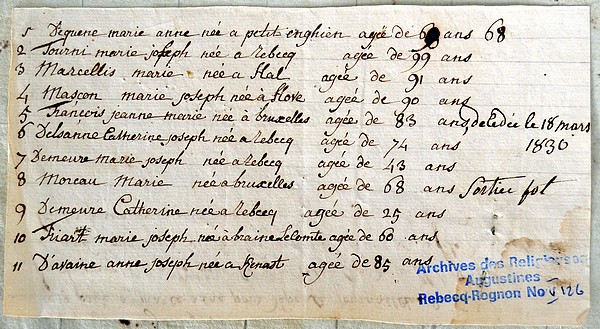 1 Dequene marie anne née a petit enghien agée de 68 ans 68
2 Tourni marie joseph née a Rebecq agée de 99 ans
3 Marcellis marie née a Hal agée de 91 ans
4 Mascon marie joseph née à Hove agée de 90 ans
5 François jeanne marie née à bruxelles agée de 83 ans decedée le 18 mars
1830
6 Delsanne Catherine joseph née a Rebecq agée de 74 ans
7 Demeure marie joseph née a Rebecq agée de 43 ans
8 Moreau Marie née a bruxelles agée de 68 ans Sortie fol
9 Demeure Catherine née a Rebecq agée de 25 ans
10 Friart marie joseph née à braine Lecomte agée de 60 ans
11 Davaine anne joseph née a Kenast agée de 85 ans
Archives des Religieuses
Augustines
Rebecq-Rognon No V 126